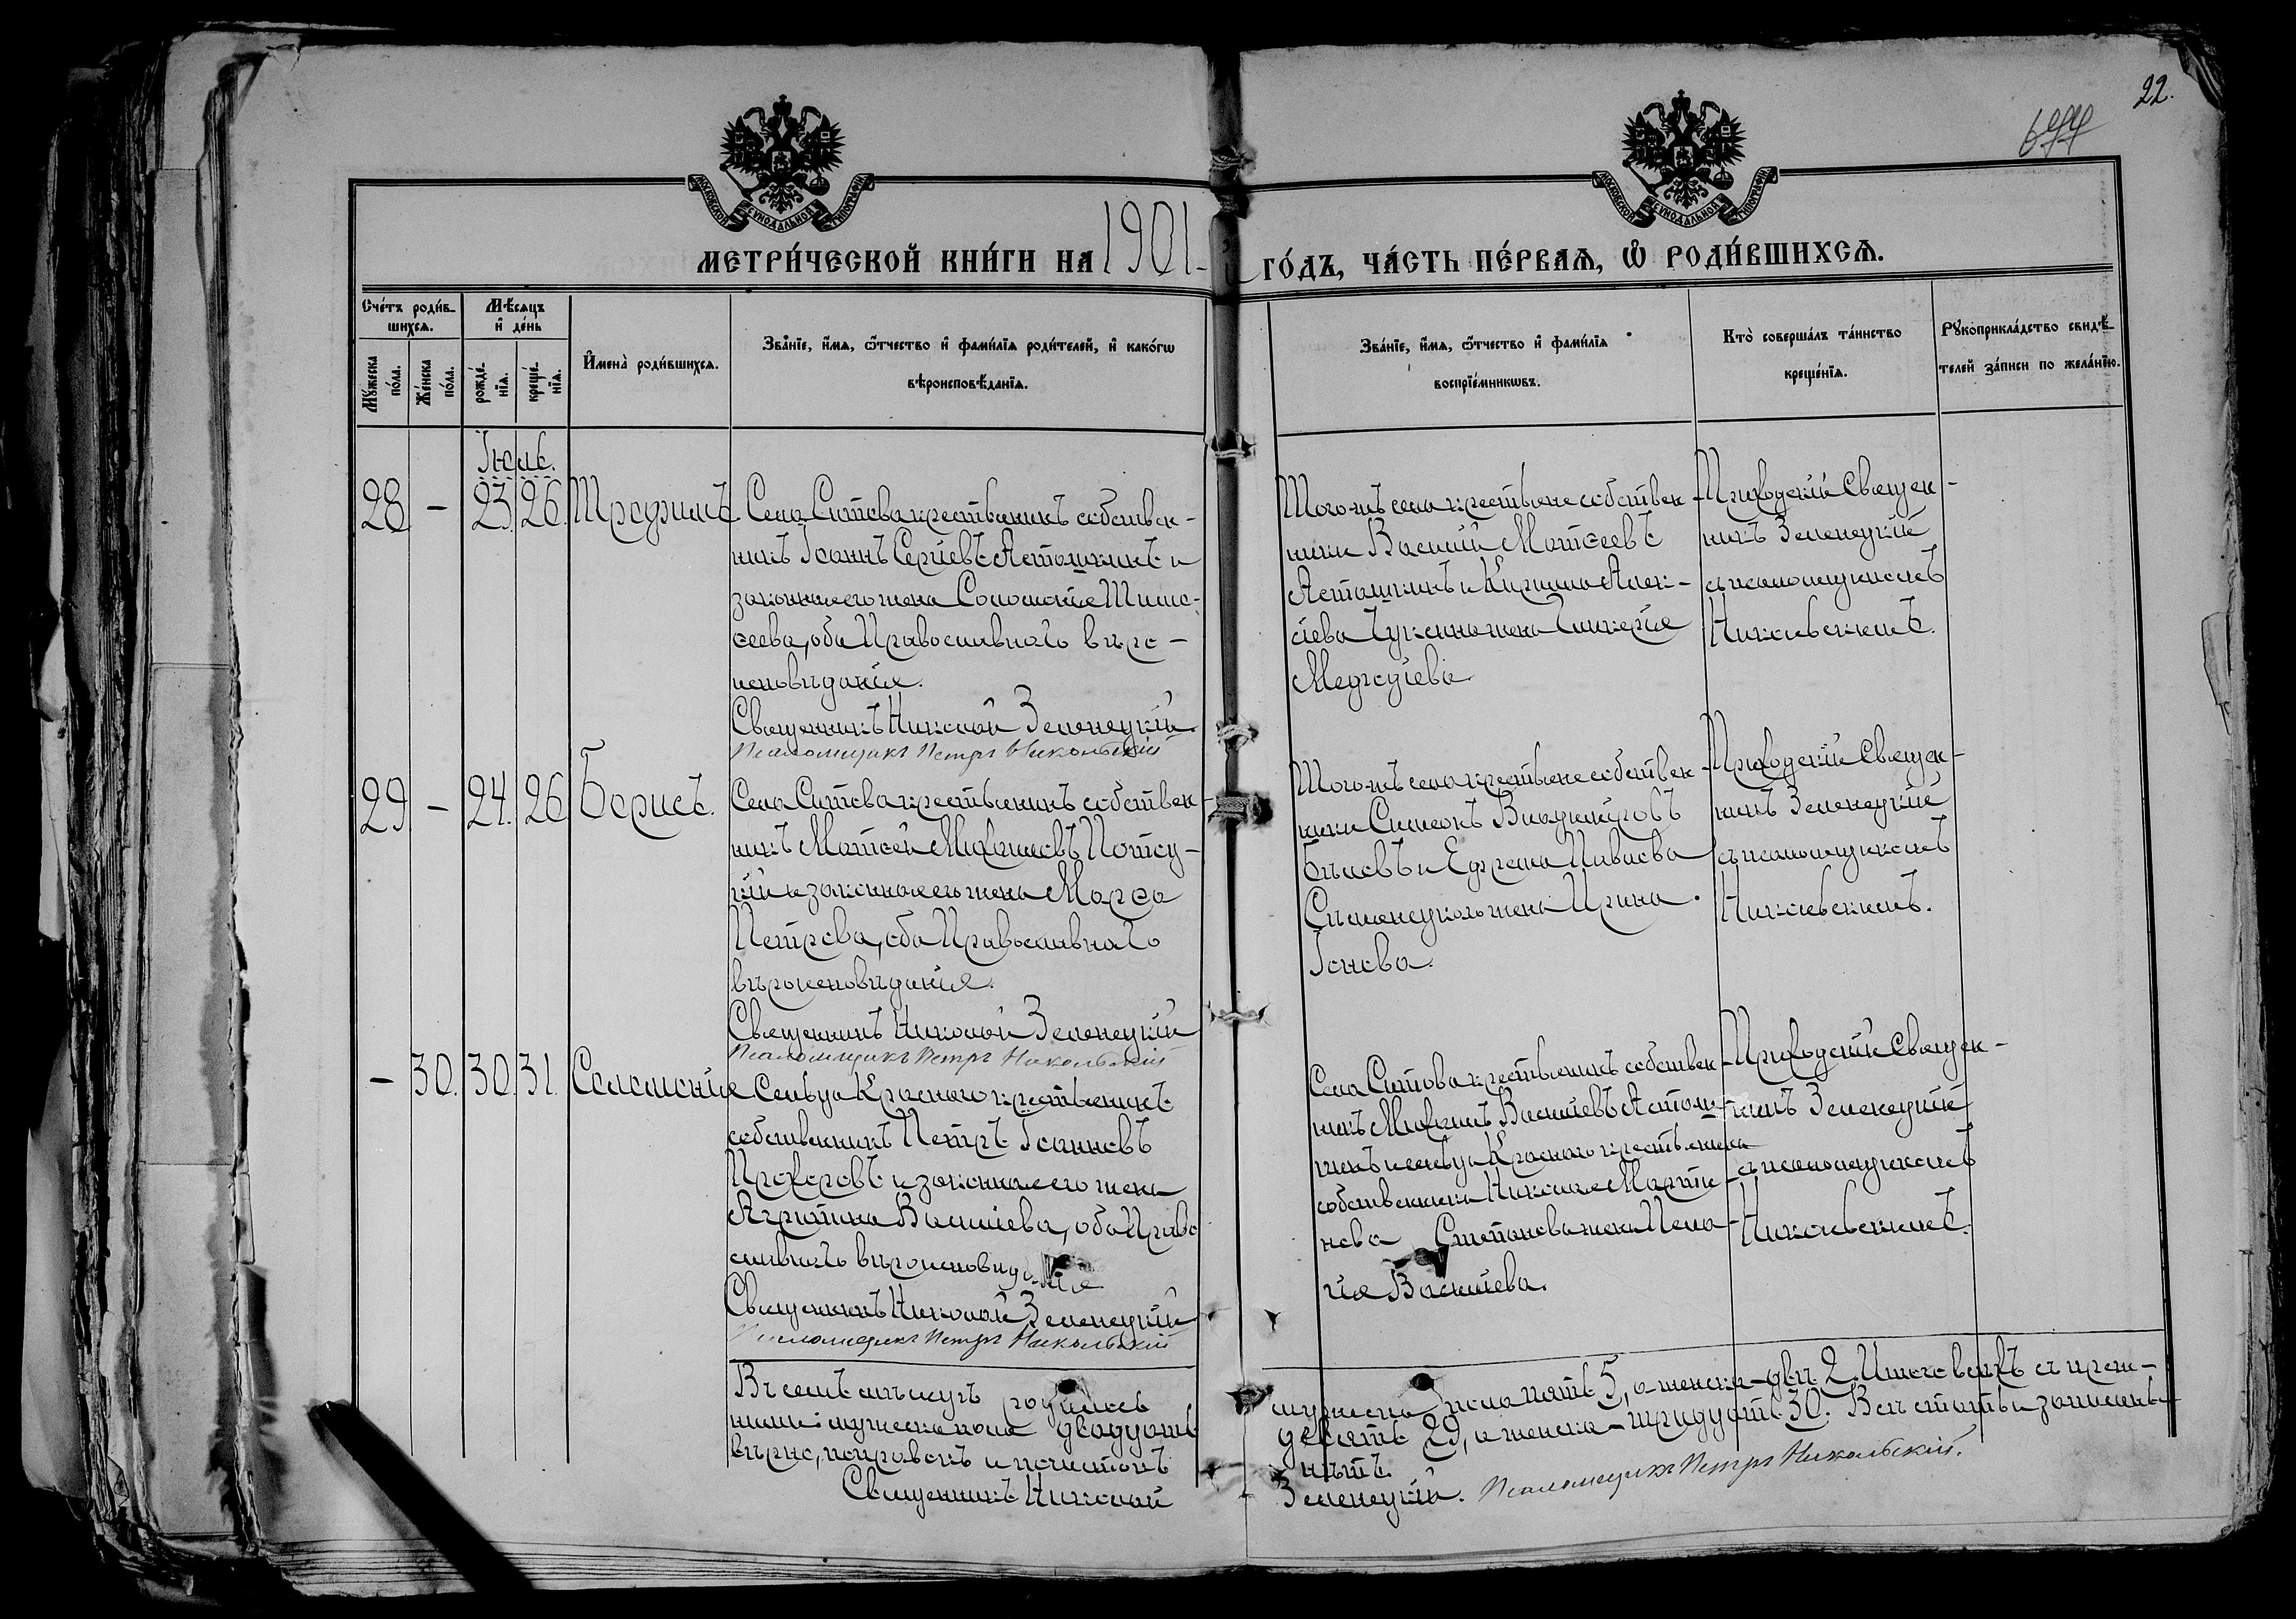 22.
МОСКОВСКОЙ СѴНОДАЛЬНОЙ ТИПОГРАФІИ
МОСКОВСКОЙ СѴНОДАЛЬНОЙ ТИПОГРАФІИ
МЕТРИ́ЧЕСКОЙ КНИ́ГИ НА 1901 ГО́ДЪ, ЧА́СТЬ ПЕ́РВАѦ, Ѡ҆ РОДИ́ВШИХСѦ.
Сче́тъ роди́в-
шихсѧ.
Мꙋ́жеска по́ла.
Же́нска по́ла.
Мѣ́сѧцъ
и҆ де́нь
рожде́-нїѧ.
креще́-нїѧ.
И҆мена̀ роди́вшихсѧ.
Зва́нїе, и҆́мѧ, ѻ҆́тчество и҆ фами́лїѧ роди́телей, и҆ како́гѡ
вѣроисповѣ́данїѧ.
Зва́нїе, и҆́мѧ, ѻ҆́тчество и҆ фами́лїѧ
воспрїе́мникѡвъ.
Кто̀ соверша́лъ та́инство
креще́нїѧ.
Рꙋкоприкла́дство свидѣ́-
телей за́писи по жела́нїю.
Іюль.
28 – 23. 26. Трофимъ
Села Ситова крестьянинъ собствен-
никъ Іоаннъ Сергіевъ Астошкинъ и
законная его жена Соломонія Тимо-
ѳеева, оба Православнаго вѣро-
исповѣданія.
Священникъ Николай Зеленецкій
Псаломщикъ Петръ Никольскій
Того-же села крестьяне собствен-
ники Василій Матѳеевъ
Астошкинъ и Кирилла Алек-
сіева жена Гликерія
Приходскій священ-
никъ Зеленецкій
съ псаломщикомъ
Никольскимъ.
29. – 24. 26 Борисъ.
Села Ситова крестьянинъ собствен-
никъ Матѳей Михаиловъ
и законная его жена Марѳа
Петрова, оба Православнаго
вѣроисповѣданія.
Священникъ Николай Зеленецкій
Псаломщикъ Петръ Никольскій
Того-же села крестьяне собствен-
ники Симеонъ
и Ефрема
жена Ирина
Приходскій священ-
никъ Зеленецкій
съ псаломщикомъ
Никольскимъ.
– 30. 30. 31. Соломонія
Сельца Краснаго крестьянинъ
собственникъ Петръ Іоанновъ
Прохоровъ и законная его жена
Агрипина Василіева, оба Право
славнаго вѣроисповѣданія
Священникъ Николай Зеленецкій
Псаломщикъ Петръ Никольскій
Села Ситова крестьянинъ собствен-
никъ Михаилъ Василіевъ Астош-
кинъ и сельца Краснаго крестьянина
собственника Николая Марти-
нова Степанова жена Пела-
гія Василіева.
Приходскій священ-
никъ Зеленецкій
съ псаломщикомъ
Никольскимъ.
Въ семъ мѣсяцѣ родилось мужеска пола пять 5, а женска – двѣ 2. Итого всѣхъ съ преж-
ними: мужеска пола двадцать девять 29, а женска – тридцать 30. Всѣ статьи записаны
вѣрно, поправокъ и почистокъ нѣтъ.
Священникъ Николай Зеленецкій. Псаломщикъ Петръ Никольскій.